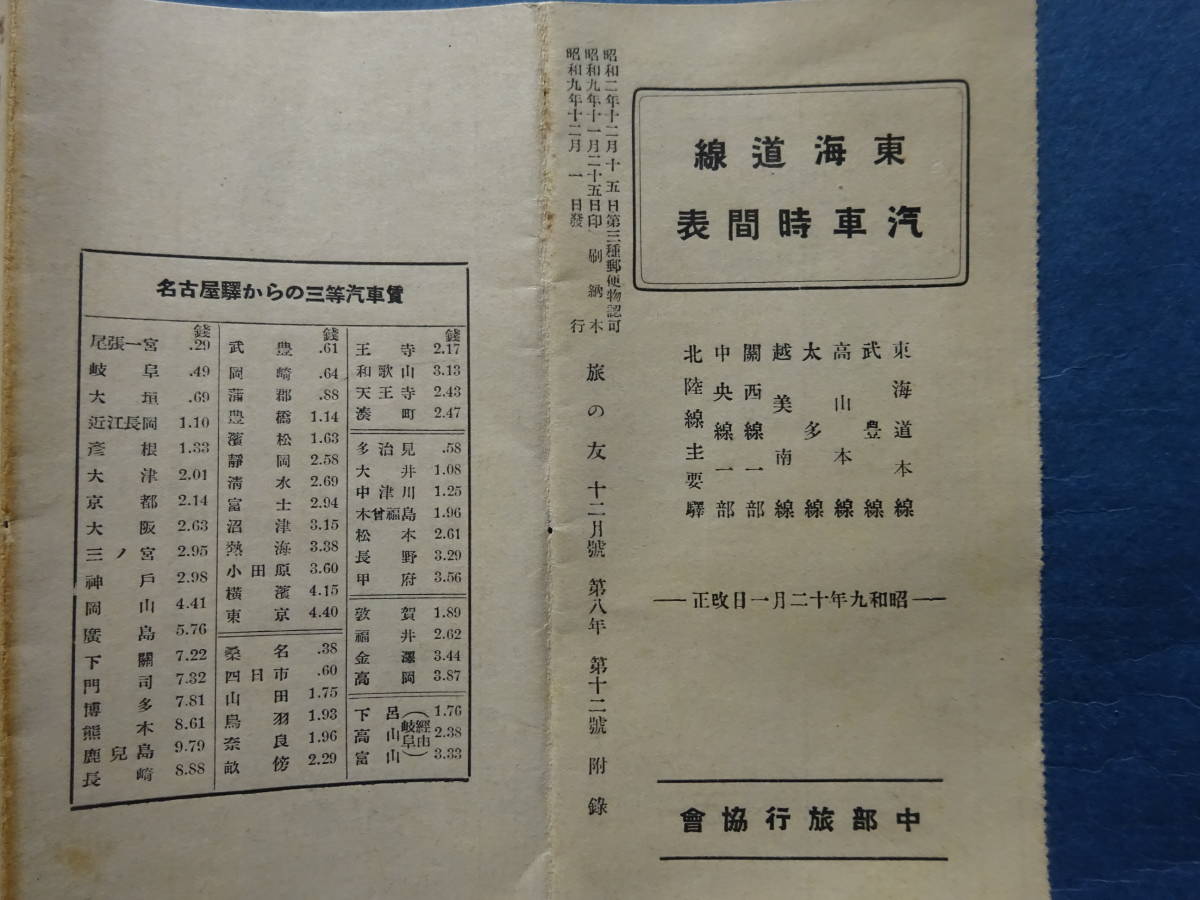 東海道線
汽車時間表
東海道本線
武豊線
高山本線
太多線
越美南線
關西線一部
中央線一部
北陸線主要驛
―昭和九年十二月一日改正―
中部旅行協會
昭和二年十二月十五日第三種郵便物認可
昭和九年十一月二十五日印刷納本
昭和九年十二月一日發行
旅の友 十二月號 第八年 第十二號 附錄
名古屋驛からの三等汽車賃
錢
尾張一宮 .29
岐阜 .49
大垣 .69
近江長岡 1.10
彥根 1.33
大津 2.01
京都 2.14
大阪 2.63
三ノ宮 2.95
神戶 2.98
岡山 4.41
廣島 5.76
下關 7.22
門司 7.32
博多 7.81
熊本 8.61
鹿兒島 9.79
長崎 8.88
錢
武豊 .61
岡崎 .64
蒲郡 .88
豊橋 1.14
濱松 1.63
靜岡 2.58
淸水 2.69
富士 2.94
沼津 3.15
熱海 3.38
小田原 3.60
橫濱 4.15
東京 4.40
桑名 .38
四日市 .60
山田 1.75
鳥羽 1.93
奈良 1.96
畝傍 2.29
錢
王寺 2.17
和歌山 3.13
天王寺 2.43
湊町 2.47
多治見 .58
大井 1.08
中津川 1.25
木曾福島 1.96
松本 2.61
長野 3.29
甲府 3.56
敦賀 1.89
福井 2.62
金澤 3.44
高岡 3.87
下呂 1.76
高山(岐阜經由) 2.38
富山 3.33